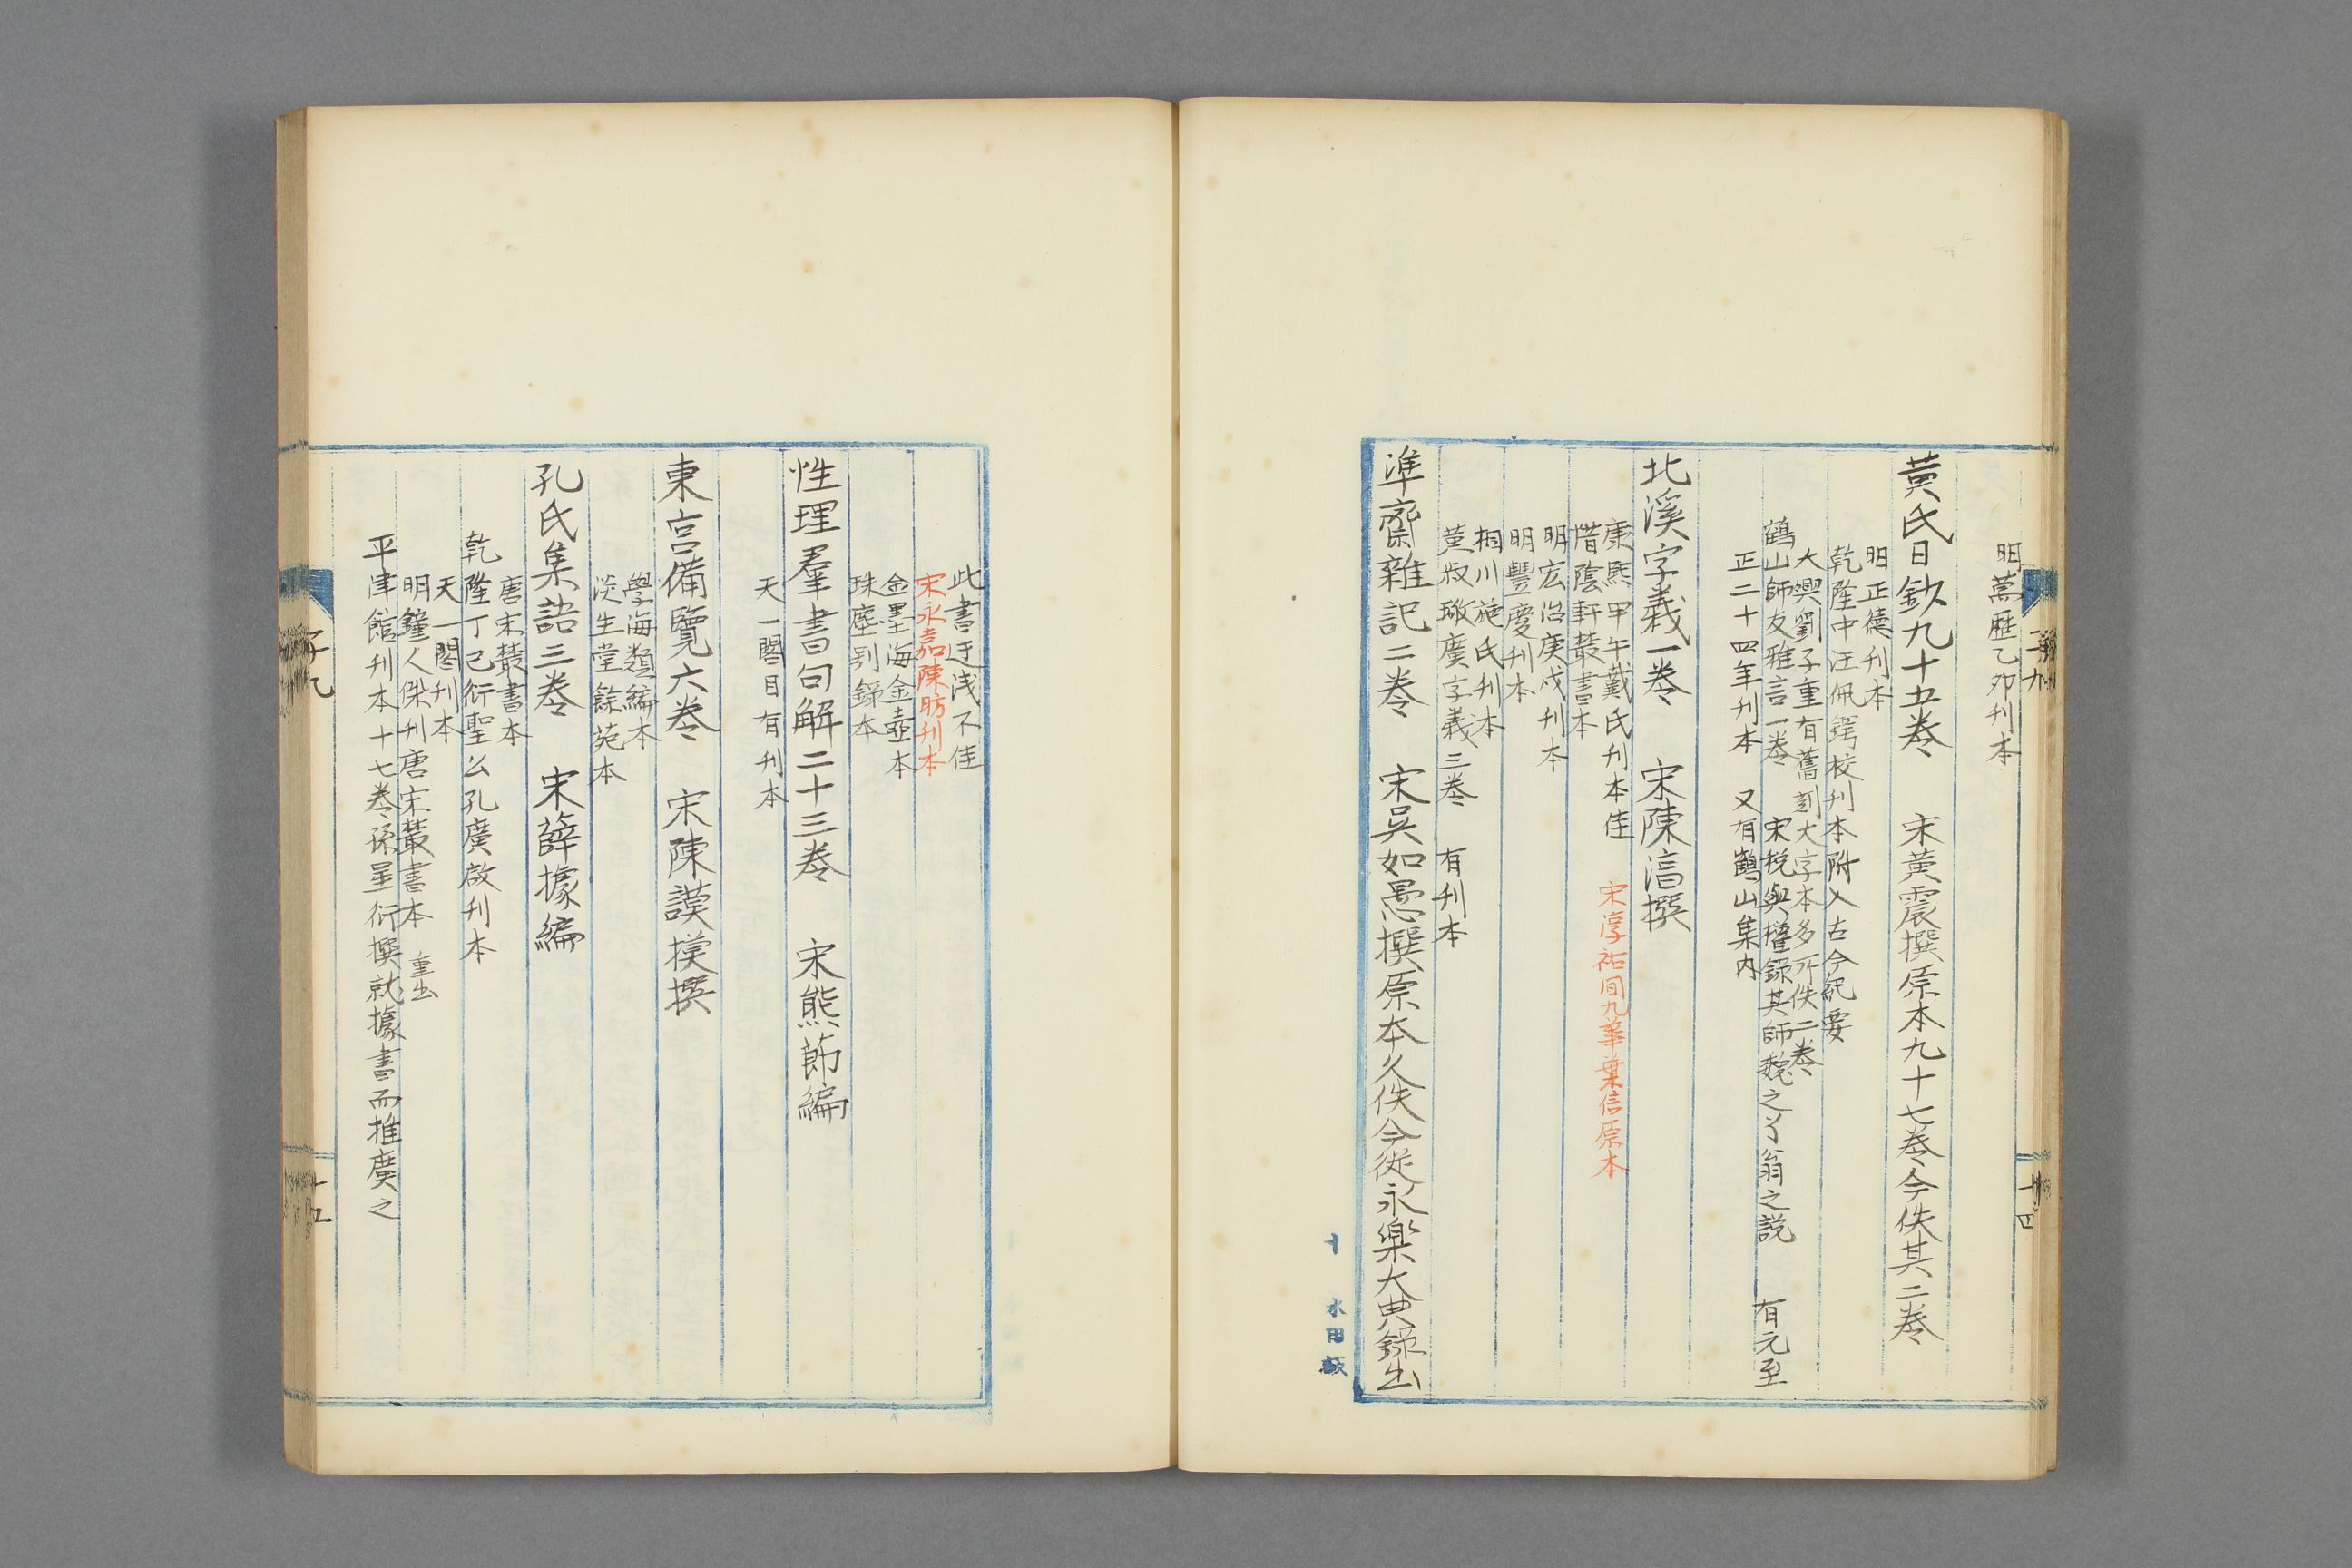 明萬歷乙夘刋本
黃氏日鈔九十五卷　宋黃震撰原本九十七卷今佚其二卷
明正德刋本
乾隆中汪佩鍔校刋本附入古今紀要
大興劉子重有舊刻大字本多所佚二卷
鶴山師友雅言一卷　宋稅與權錄其師魏之了翁之說　有元至
正二十四年刋本　又有鶴山集內
北溪字義一卷　宋陳淳撰
康熙甲午戴氏刋本佳　宋淳祐間九華葉信原本
惜陰軒叢書本
明宏治庚戌刋本
明豐慶刋本
桐川施氏刋本
黃叔璥廣字義三卷　有刋本
準齋雜記二卷　宋吳如愚撰原本久佚今從永樂大典錄出
此書迂淺不佳
宋永嘉陳昉刋本
金墨海金壺本
珠塵別錄本
性理羣書句解二十三卷　宋熊節編
天一閣目有刋本
東宮備覽六卷　宋陳謨撰撰
學海類編本
淡生堂餘苑本
孔氏集語三卷　宋薛據編
唐宋叢書本
乾隆丁巳衍聖公孔廣啟刋本
天一閣刋本
明鐘人傑刋唐宋叢書本　重出
平津館刋本十七卷孫星衍撰就據書而推廣之
子九